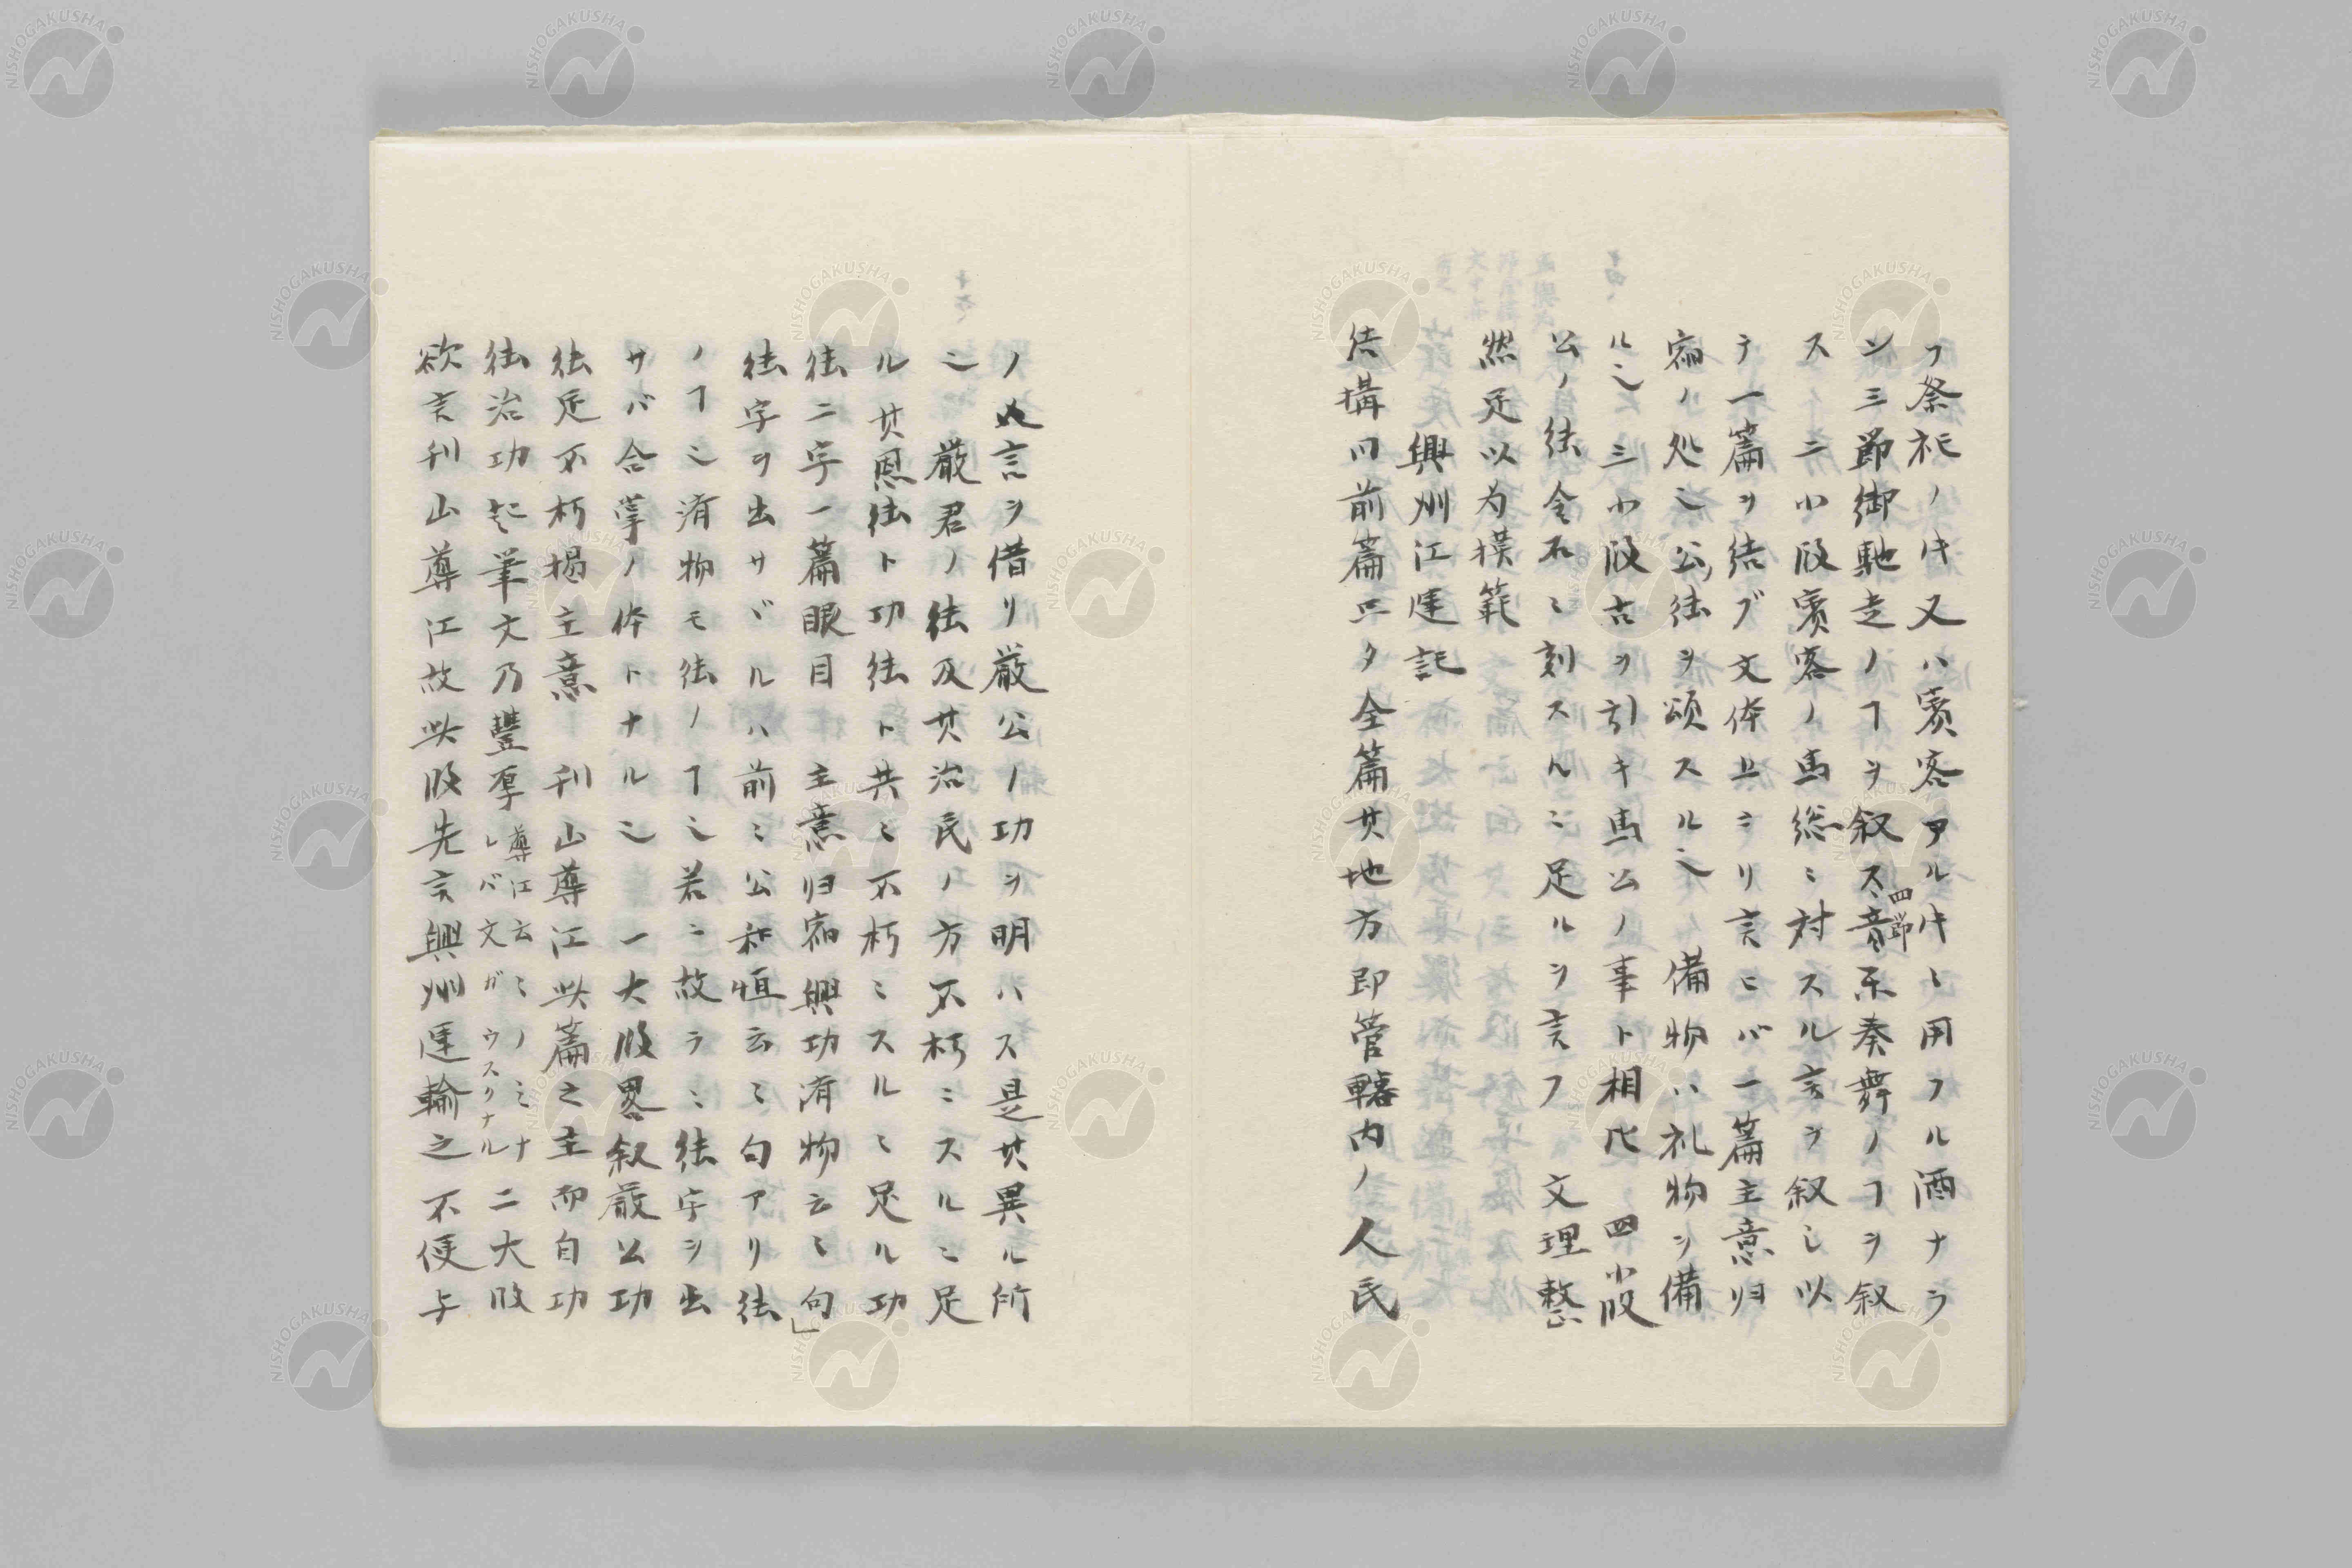 フ祭祀ノ㐧又ハ賓客アル㐧ミ用フル酒ナラ
ン三節御馳走ノヿヲ叙ス音系奏舞ノヿヲ叙
四節
スイニ小段賓客ノ馬総ミ対スル言ヲ叙シ以
テ一篇ヲ結ブ文体
リ言ヘバ一篇主意归
宿ノ処ミ公徳ヲ頌スル之 備物ハ礼物ヲ備
ル之 三小段古ヲ引キ馬公ノ事ト相比 四小段
公ノ徳金石ミ刻スルニ足ルヲ言フ 文理整
然足以为模範
興州江運記
结搆同前篇
タ全篇其地方即管轄内ノ人民
ノ
言ヲ借リ厳公ノ功ヲ明ハス是其異ル所
之 厳君ノ徳及其治民ノ方不朽ニスルニ足
ル其恩徳ト功徳ト共ミ不朽ミスルミ足ル功
徳二字一篇眼目 主意归宿興功済物云ミ句」
徳字ヲ出サヾルハ前ミ公和恒云ミ句アリ徳
ノヿ之済物モ徳ノヿ之若ニ故ラミ徳字ヲ出
サバ合掌ノ体トナル之 一大段畧叙厳公功
徳足不朽揭主意 刊山導江此篇之主而自功
徳治功起筆文乃豐厚
導江云ミノミナ
レバ文ガウスクナル
二大段
欲言刊山導江故此段先言興州運輸之不便与